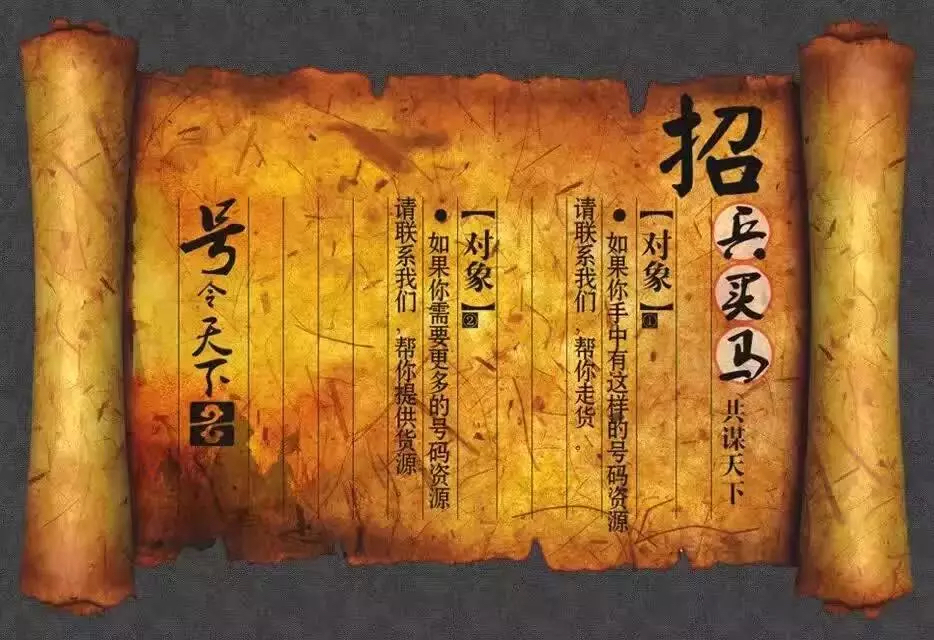 招兵买马 共谋天下
【对象】①
● 如果你手中有这样的号码资源
请联系我们，帮你走货。
【对象】②
● 如果你需要更多的号码资源
请联系我们，帮你提供货源
号令天下